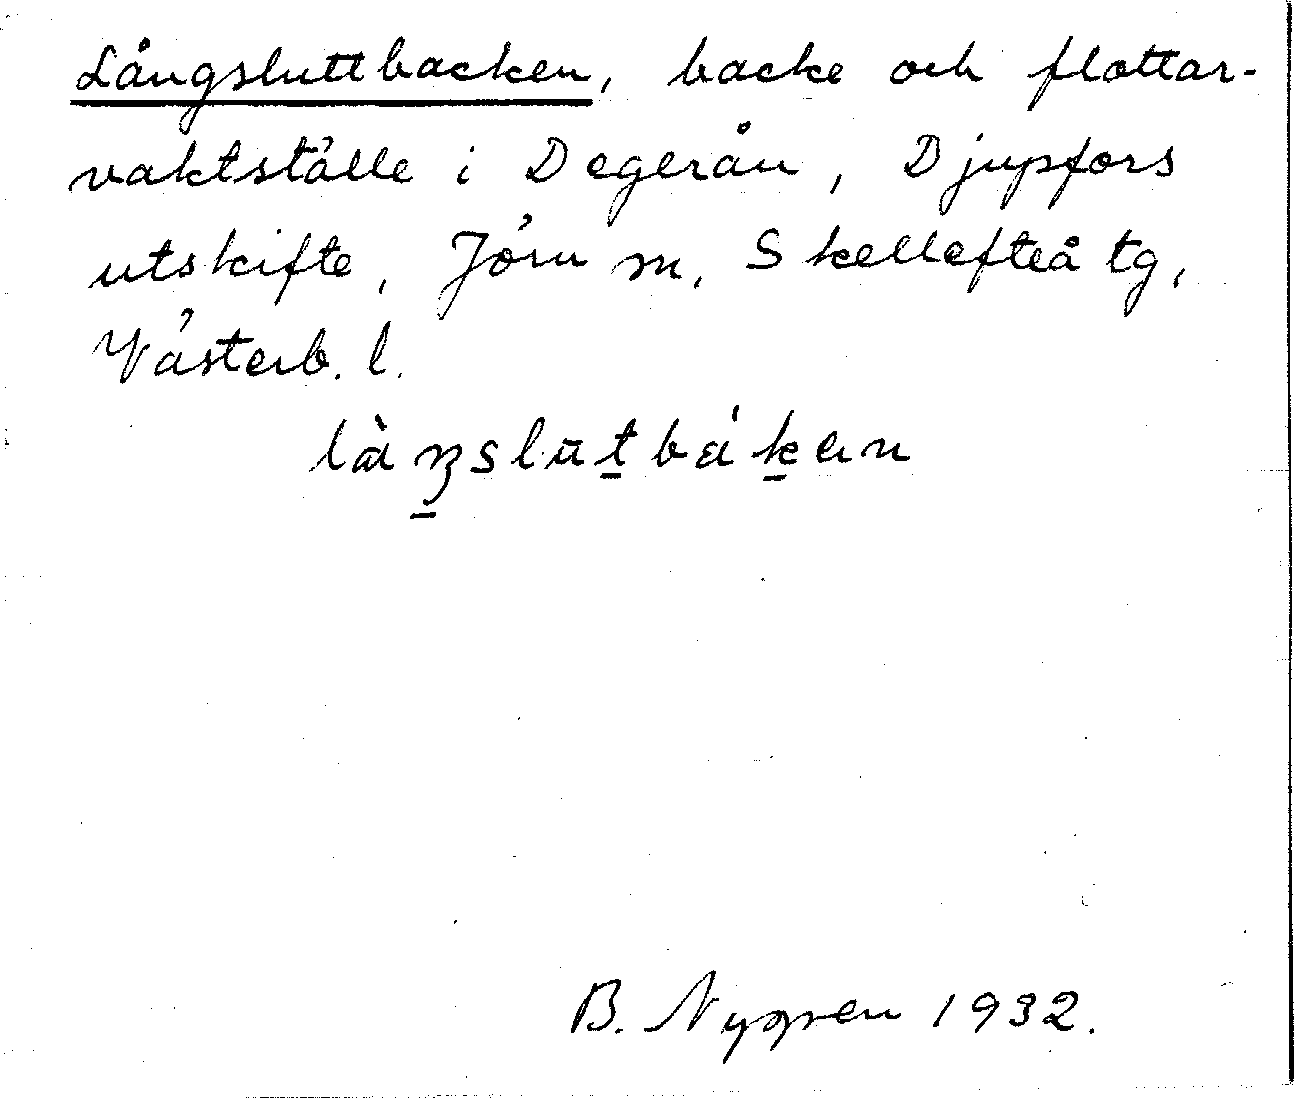 Långsluttbacken, backe och flottar-
vaktställe i Degerån, Djupfors
utskifte, Jörn sn, Skellefteå tg,
Västerb. l.
B. Nygren 1932.